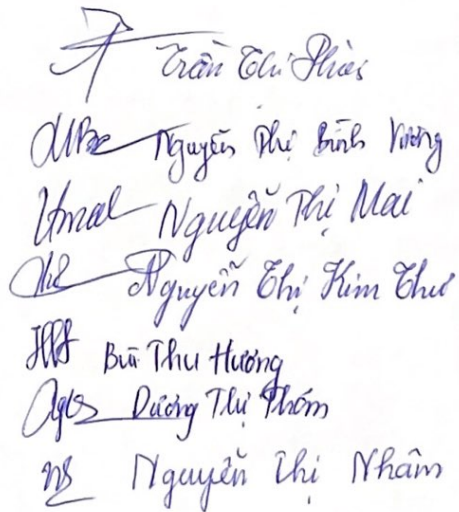 Trần Thị
Nguyễn Thị Bình Vương
Nguyễn Thị Mai
Nguyễn Thị Kim Thư
Bùi Thu Hương
Dương Thị Thơm
Nguyễn Thị Nhâm